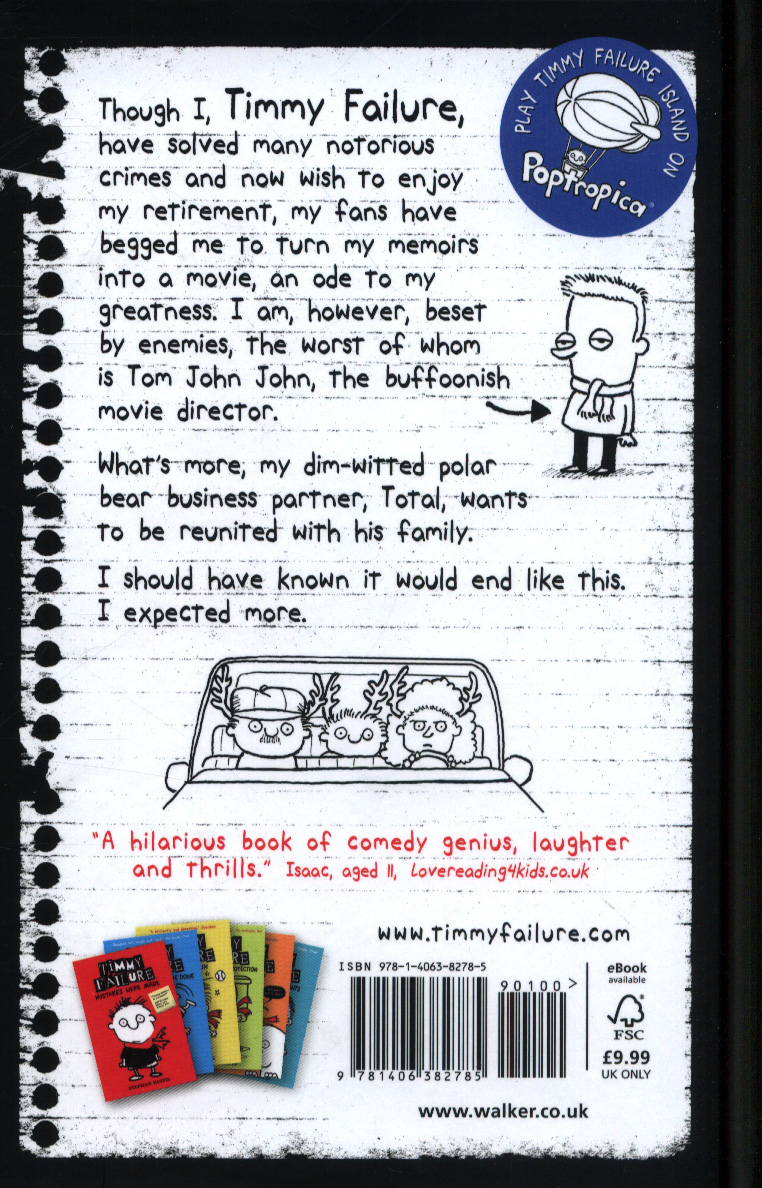 PLAY TIMMY FAILURE ISLAND ON
Poptropica
Though I, Timmy Failure,
have solved many notorious
crimes and now wish to enjoy
my retirement, my fans have
begged me to turn my memoirs
into a movie, an ode to my
greatness. I am, however, beset
by enemies, the worst of whom
is Tom John John, the buffoonish
movie director.
What's more, my dim-witted polar
bear business partner, Total, wants
to be reunited with his family.
I should have known it would end like this.
I expected more.
"A hilarious book of comedy genius, laughter
and thrills." Isaac, aged 11, Lovereading4kids.co.uk
TIMMY
FAILURE
MISTAKES WERE MADE
STEPHAN PASTIS
www.timmyfailure.com
ISBN 978-1-4063-8278-5
90100>
9 781406 382785
eBook
available
FSC
£9.99
UK ONLY
www.walker.co.uk